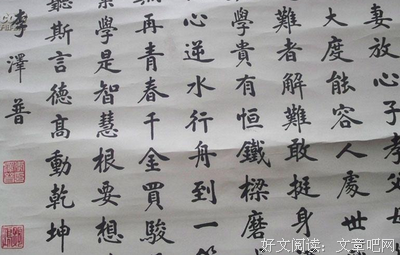 妻放心子孝父母
大度能容人處世
難者解難敢挺身
學貴有恒鐵樑磨
心逆水行舟到一
再青春千金買駿
學是智慧根要想
聽斯言德高動乾坤
李澤普
好文阅读:文章吧网